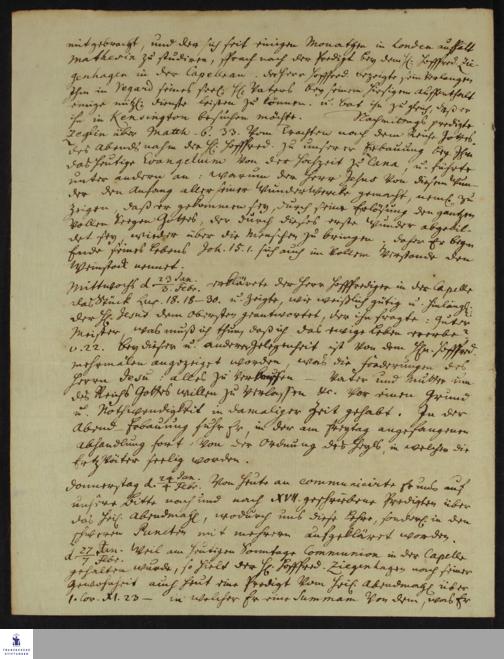 mitgebracht, und der sich seit einigen Monathen in London aufhält
Mathesin zu studiren, sprach nach der Predigt bey dem H. Hoffpred. Zie-
genhagen in der Capelle an. Der Herr Hoffpred. bezeigte sein Verlangen
Ihm in Regard seines Herrn Vaters bey seinem hiesigen Aufenthalt
einige Dienste leisten zu können. u. bat ihn zugleich, daß er
ihn in Kensington besuchen möchte. Nachmittags predigte
über Matth. 6. 33. Vom Trachten nach dem Reich Gottes.
Des Abends nahm der H. Hoffpred. zu unserer Erbauung
das heutige Evangelium von der Hochzeit zu Cana, u. führte
unter andern an: warum der Herr Jesus von diesem Wun-
der den Anfang aller seiner Wunderwerke gemacht, neml. zu
zeigen, daß er gekommen sey, durch seine Erlösung den gantzen
vollen Segen Gottes, der durch dieses erste Wunder abgebil-
det sey, wieder über die Menschen zu bringen. daher Er beym
Ende seines Lebens Joh. 15. 1. sich auch im vollen Verstande den
Weinstock nennet.
Mittwochs d. 23 Jan. / 3. Febr. erklärete der Herr Hoffprediger in der Capelle
das Stück Luc. 18. 18-30. u. zeigte, wie weißlich gütig u.
der H. Jesus dem Obersten geantwortet, der ihn fragte: Guter
Meister, was muß ich thun, daß ich das ewige Leben ererbe?
v. 22. Bey dieser u. anderer Gelegenheit ist von dem Hrn. Hoffpred.
mehrmalen angezeiget worden, was die Forderungen des
Herrn Jesu: alles zu verkauffen — Vater und Mutter um
des Reichs Gottes willen zu verlassen &c. vor einen Grund
u. Nothwendigkeit in damaliger Zeit gehabt. In der
Abend Erbauung fuhr Er, in der am Freytag angefangenen
Abhandlung fort von der Ordnung des Heyls, in welcher die
Ertzväter seelig worden.
Donnerstag d. 24 Jan. / 4 Febr. Von heute an communicirte Er uns auf
unsere Bitte nach und nach XVII geschriebene Predigten über
das Heil. Abendmahl, wodurch uns diese Lehre, sonderl. in den
schweren Puncten mit mehrern aufgekläret worden.
d. 27 Jan. / 7 Febr. Weil am heutigen Sonntage Communion in der Capelle
gehalten wurde, so hielt der H. Hoffpred. Ziegenhagen nach seiner
Gewohnheit auch heut eine Predigt vom Heil. Abendmahl über
1. Cor. XI. 23 — in welcher Er eine Summam von dem, was Er
FRANCKESCHE
STIFTUNGEN